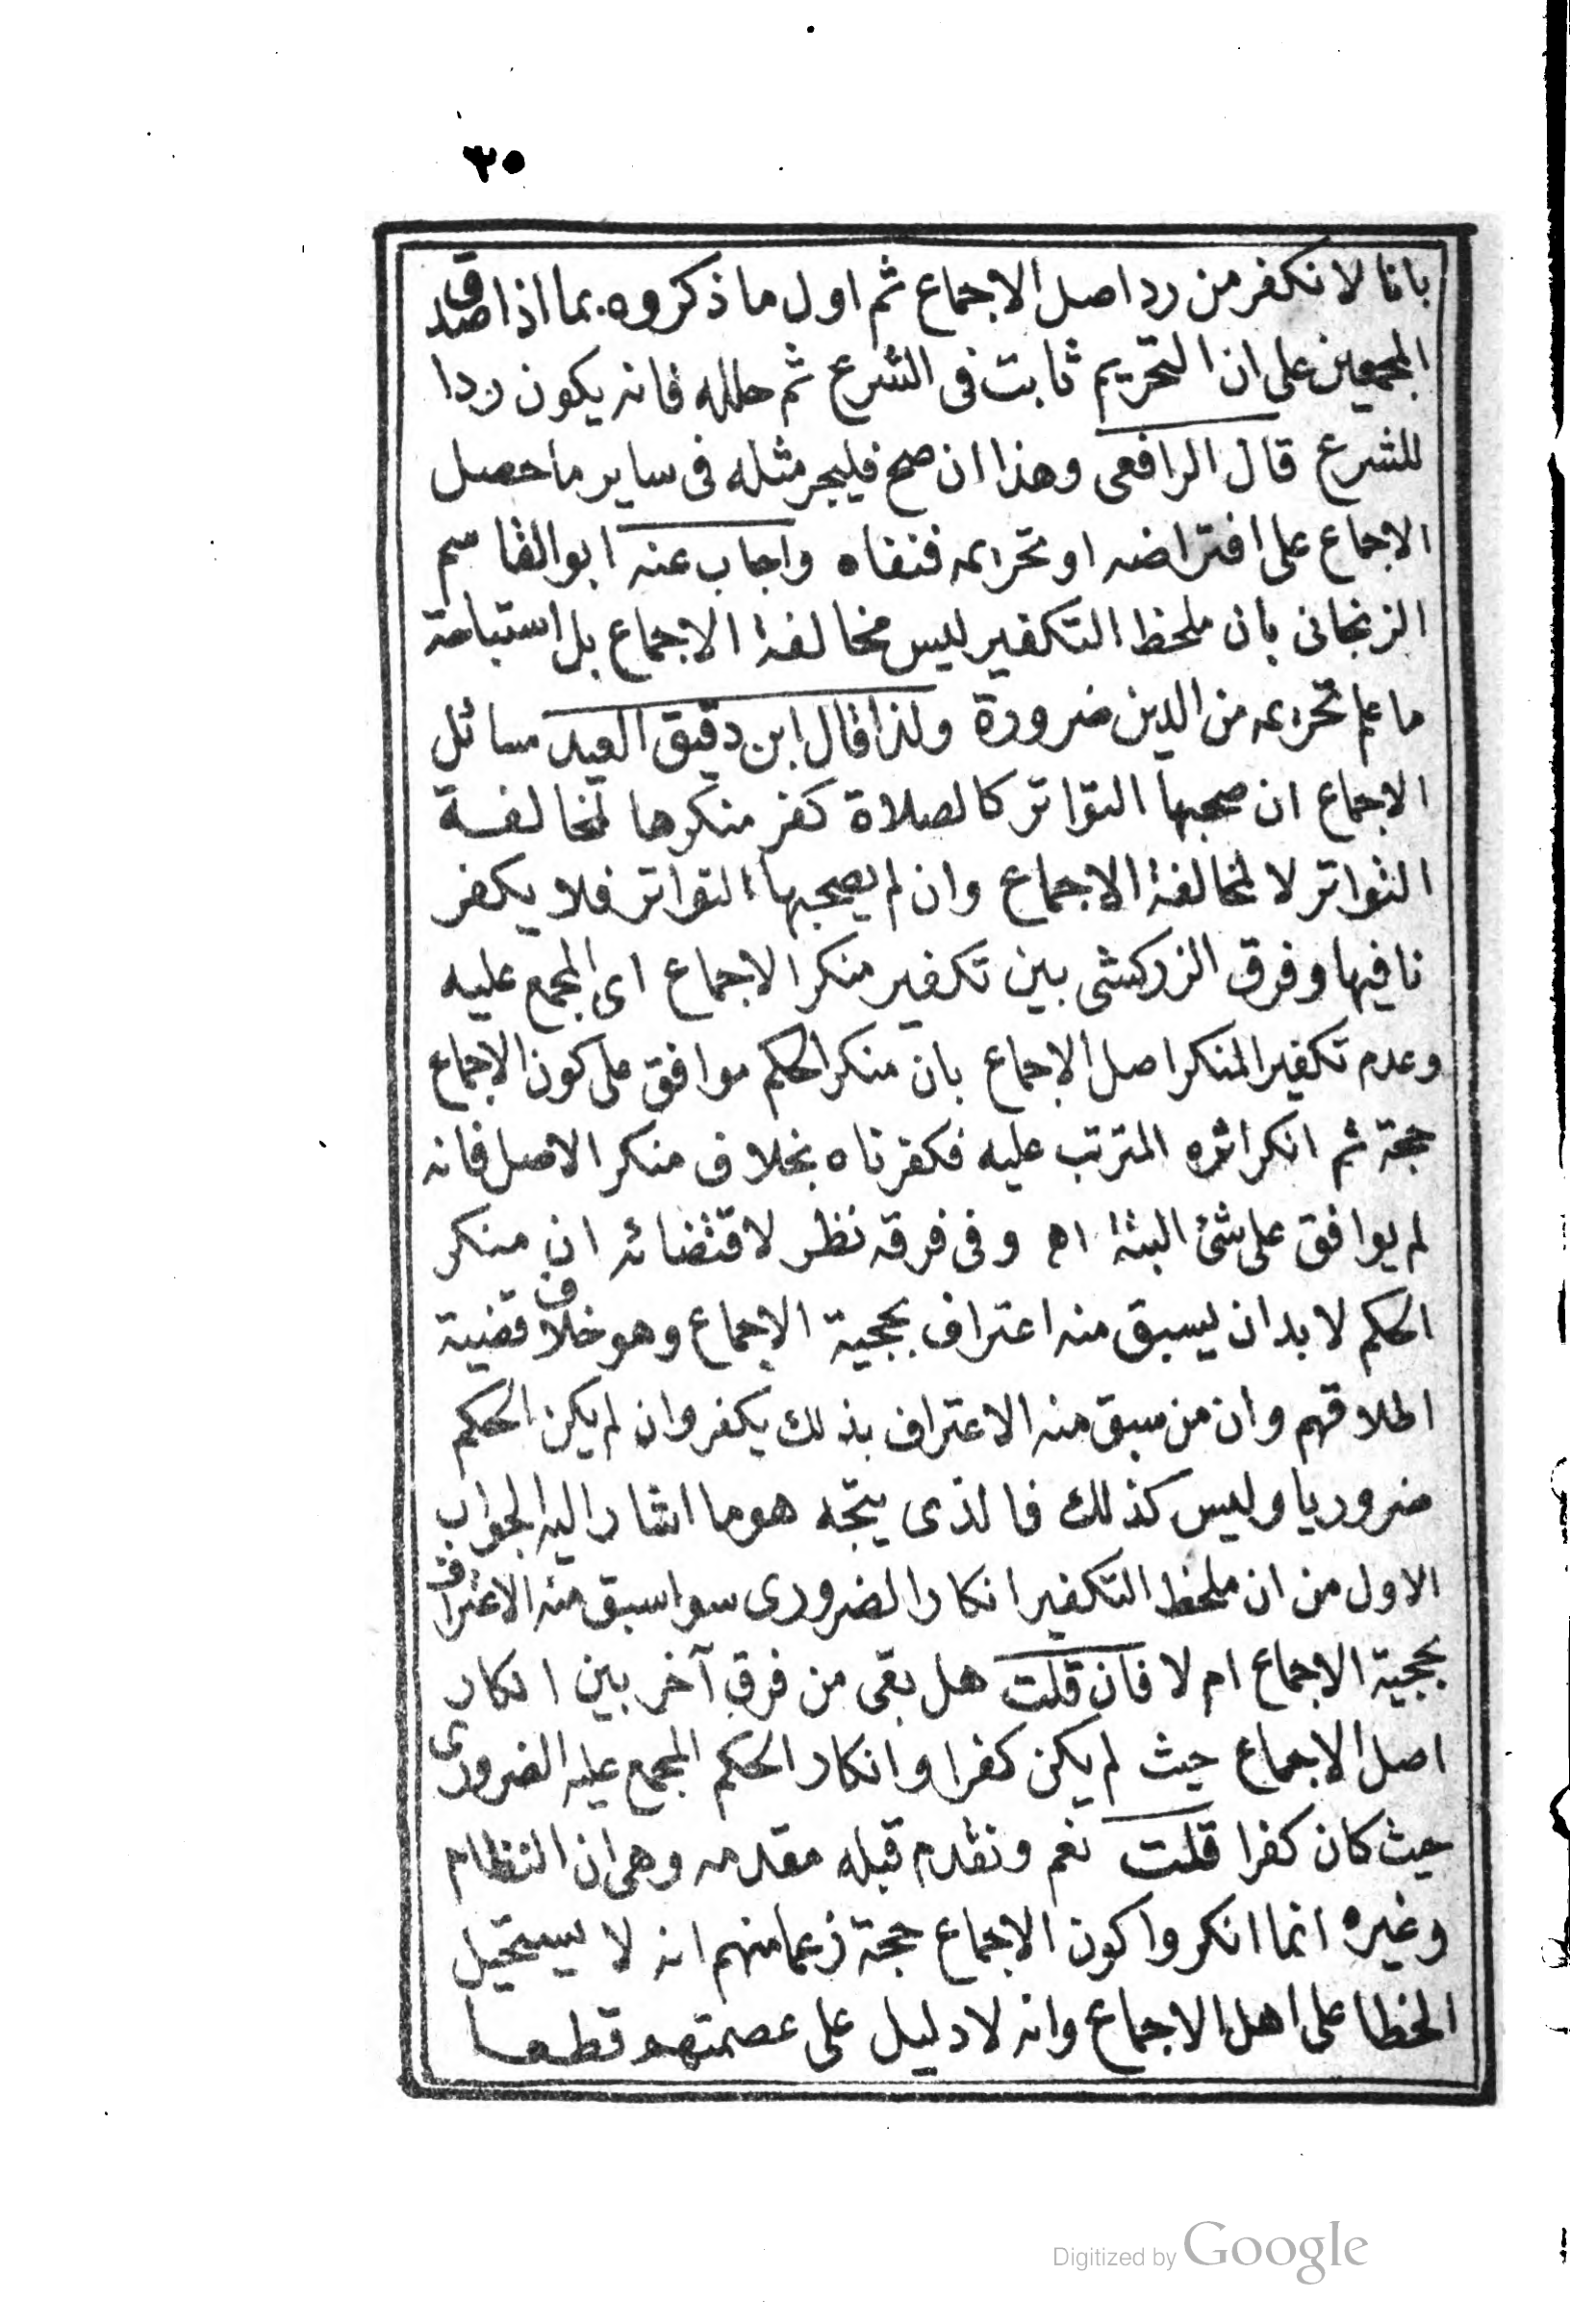 ٣٥
بانا لا نكفر من رد اصل الاجماع ثم اول ما ذكروه بما اذا صدق
المجمعين على ان التحريم ثابت فى الشرع ثم حلله فانه يكون ردا
للشرع قال الرافعى وهذا ان صح فليجر مثله فى ساير ما حصل
الاجماع على افتراضه او تحريمه فنفاه واجاب عنه ابو القاسم
الزنجانى بان ملحظ التكفير ليس مخالفة الاجماع بل استباحة
ما علم تحريمه من الدين ضرورة ولذا قال ابن دقيق العيد مسائل
الاجماع ان صحبها التواتر كالصلاة كفر منكرها لمخالفة
التواتر لا لمخالفة الاجماع وان لم يصحبها التواتر فلا يكفر
نافيها وفرق الزركشى بين تكفير منكر الاجماع اى المجمع عليه
وعدم تكفير المنكر اصل الاجماع بان منكر الحكم موافق على كون الاجماع
حجة ثم انكر اثره المترتب عليه فكفرناه بخلاف منكر الاصل فانه
لم يوافق على شئ البتة اه وفى فرقه نظر لاقتضائه ان منكر
الحكم لا بد ان يسبق منه اعتراف بحجية الاجماع وهو خلاف قضية
اطلاقهم وان من سبق منه الاعتراف بذلك يكفر وان لم يكن الحكم
ضروريا وليس كذلك فالذى يتجه هو ما اشار اليه الجواب
الاول من ان ملحظ التكفير انكار الضرورى سوا سبق منه الاعتراف
بحجية الاجماع ام لا فان قلت هل بقى من فرق آخر بين انكار
اصل الاجماع حيث لم يكن كفرا وانكار الحكم المجمع عليه الضرورى
حيث كان كفرا قلت نعم ونقدم قبله مقدمه وهى ان النظام
وغيره انما انكروا كون الاجماع حجة زعما منهم انه لا يستحيل
الخطا على اهل الاجماع وانه لا دليل على عصمتهم قطعا
Digitized by Google